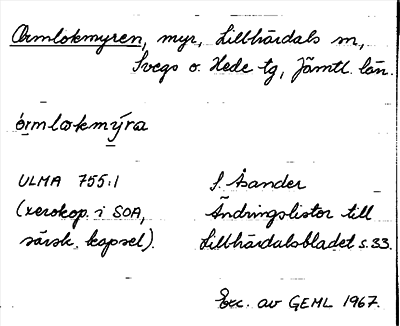 Ormlokmyren, myr, Lillhärdals sn,
Svegs o. Hede tg, Jämtl. län.
órmlokmýra
ULMA 755:1 S. Åsander
(xerokop. i SOA, Ändringslistor till
särsk. kapsel). Lillhärdalsbladet s. 33.
Exc. av GEML 1967.